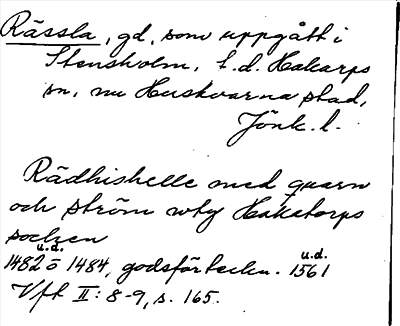 Rässla, gd, som uppgått i
Stensholm, f.d. Hakarps
sn, nu Huskvarna stad,
Jönk. l.
Rädhishelle med quarn
och ström wty Hakatorps
socken
u.d. u.d.
1482 o 1484, godsförteckn. 1561
Vft II: 8-9, s. 165.